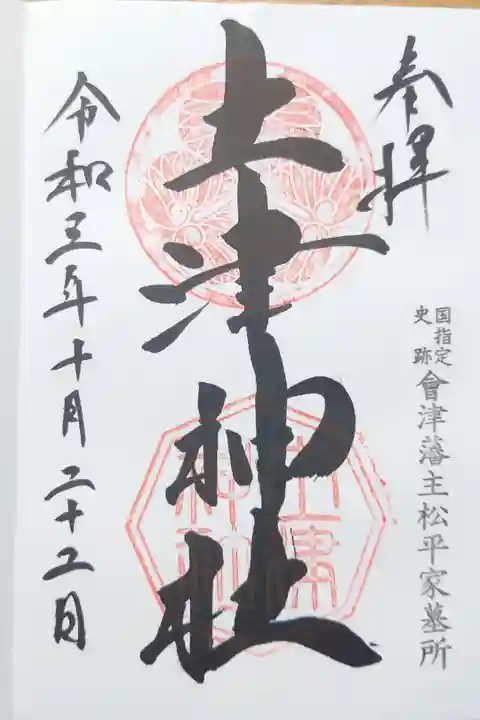 奉拝
国指定
史跡
會津藩主松平家墓所
土津神社
令和三年十月二十五日